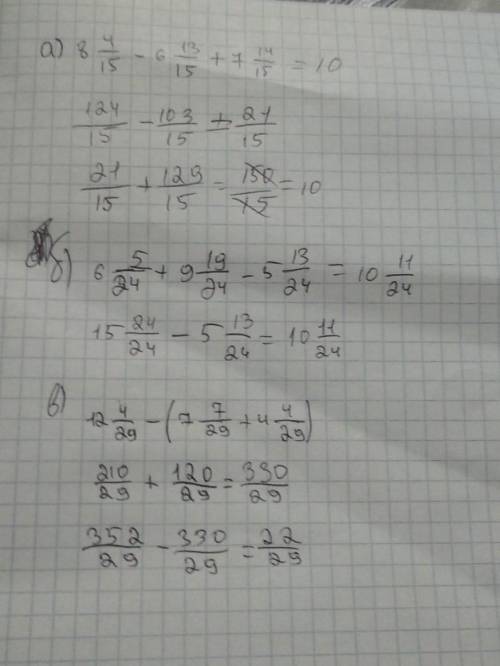 а) 8 4/15 - 6 13/15 + 7 14/15 = 10
124/15 - 103/15 + 21/15
21/15 + 129/15 = 150/15 = 10
б) 6 5/24 + 9 19/24 - 5 13/24 = 10 11/24
15 24/24 - 5 13/24 = 10 11/24
в) 12 4/29 - (7 7/29 + 4 4/29)
210/29 + 120/29 = 330/29
352/29 - 330/29 = 22/29